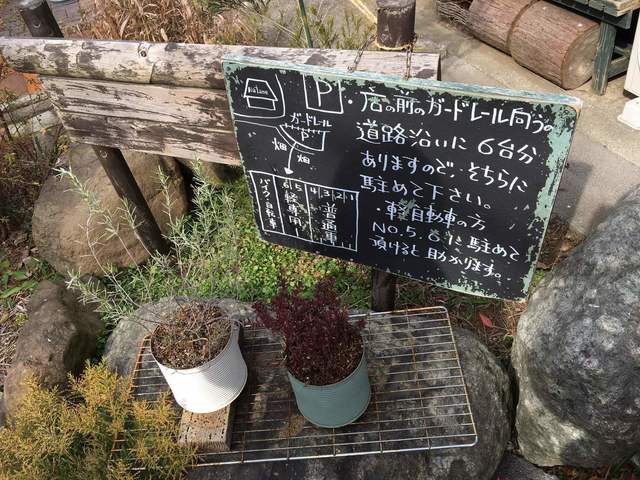 P
・店の前のガードレール向うの
道路沿いに6台分
ありますので、そちらに
駐めて下さい。
・軽自動車の方
No.5.6に駐めて
頂けると助かります。
ガードレール
畑
畑
バイク・自転車
6 5 4 3 2 1
軽専用
普通車